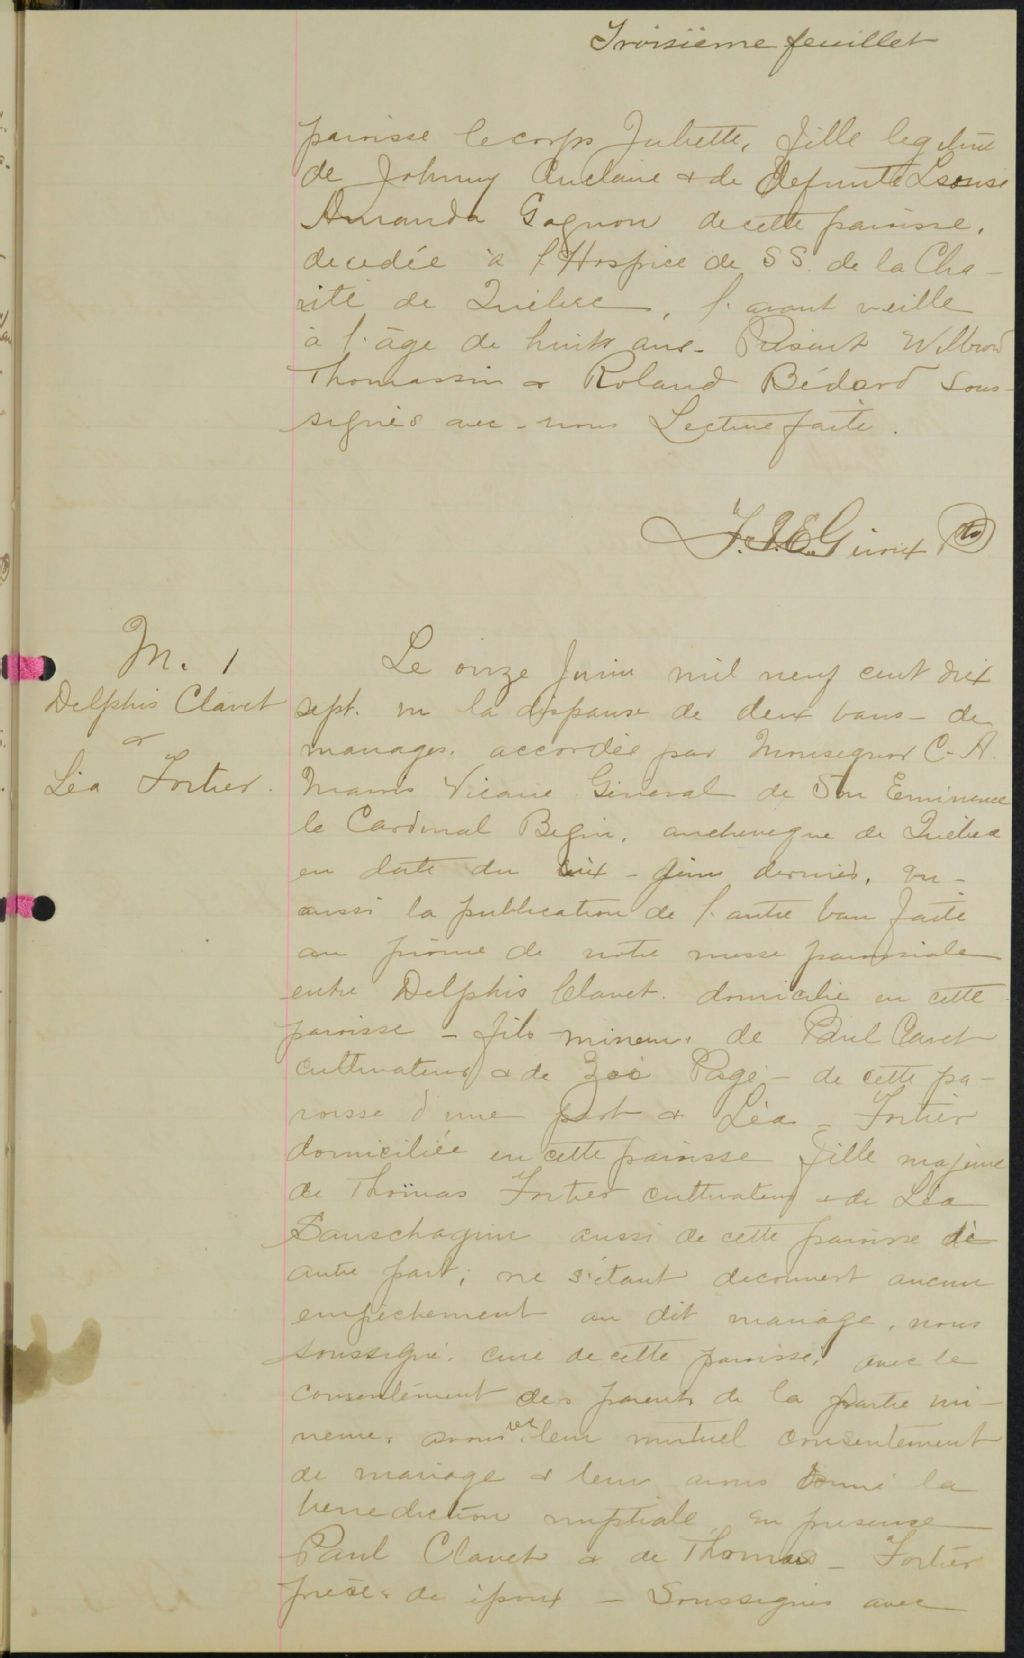 Troisième feuillet
paroisse le corps Juliette, fille legitime
de Johnny Auclaire & de defunte Louise
Amanda Gagnon de cette paroisse,
decedée à l'Hospice de SS. de la Cha-
rité de Québec, l'avant veille
à l'âge de huit ans - Présent Wilbrod
Thomassin & Roland Bédard Sous-
signés avec nous Lecture faite.
F.J.E. Giroux
M. 1
Delphis Clavet
&
Léa Fortier.
Le onze Juin mil neuf cent dix
sept. vu la dispense de deux bans - de
mariages. accordée par Monseignor C. A.
Marois Vicaire General de Son Eminence
le Cardinal Begin, archeveque de Québec
en date du - juin dernier, vu -
aussi la publication de l'autre ban faite
au prône de notre messe paroissiale
entre Delphis Clavet. domicilié en cette
paroisse - fils mineur de Paul Clavet
cultivateur & de Zoé Pagé - de cette pa-
roisse d'une part & Léa - Fortier
domiciliée en cette paroisse fille majeure
de Thomas Fortier cultivateur & de Léa
Sanschagrin aussi de cette paroisse de
autre part; ne s'étant decouvert aucun
empêchement au dit mariage, nous
soussigné. curé de cette paroisse, avec le
consentement des parents de la partie mi-
neure, avons reçu leur mutuel consentement
de mariage & leur avons donné la
benediction nuptiale en presence
Paul Clavet & de Thomas - Fortier
pères de époux - Soussignés avec